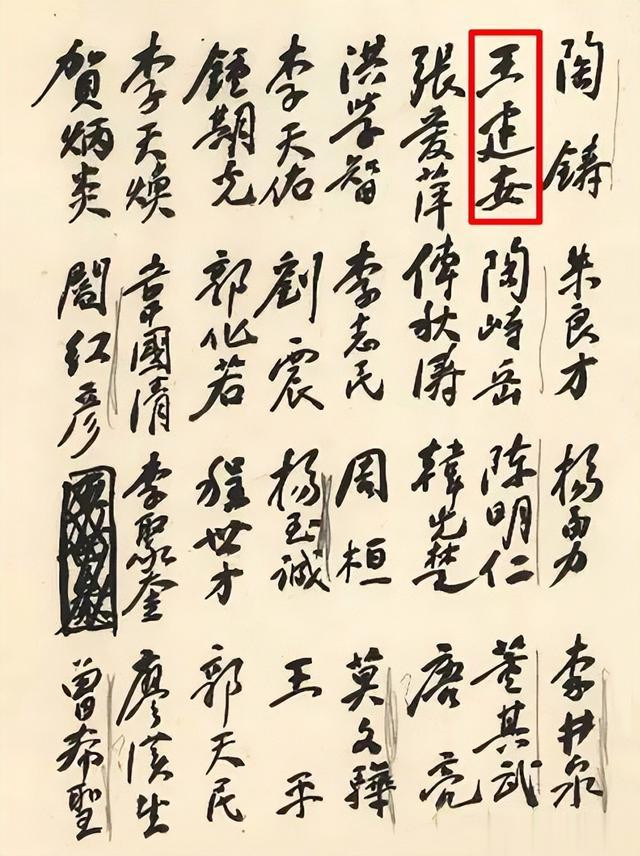 陶鑄 朱良才 楊勇 李井泉
王建安 陶峙岳 陈明仁 董其武
張愛萍 傅秋涛 韓先楚 唐亮
洪学智 李志民 周桓 莫文驊
李天佑 劉震 楊至誠 王平
鍾期光 郭化若 程世才 郭天民
李天焕 韋國清 李聚奎 廖漢生
賀炳炎 閻红彦 曾希聖